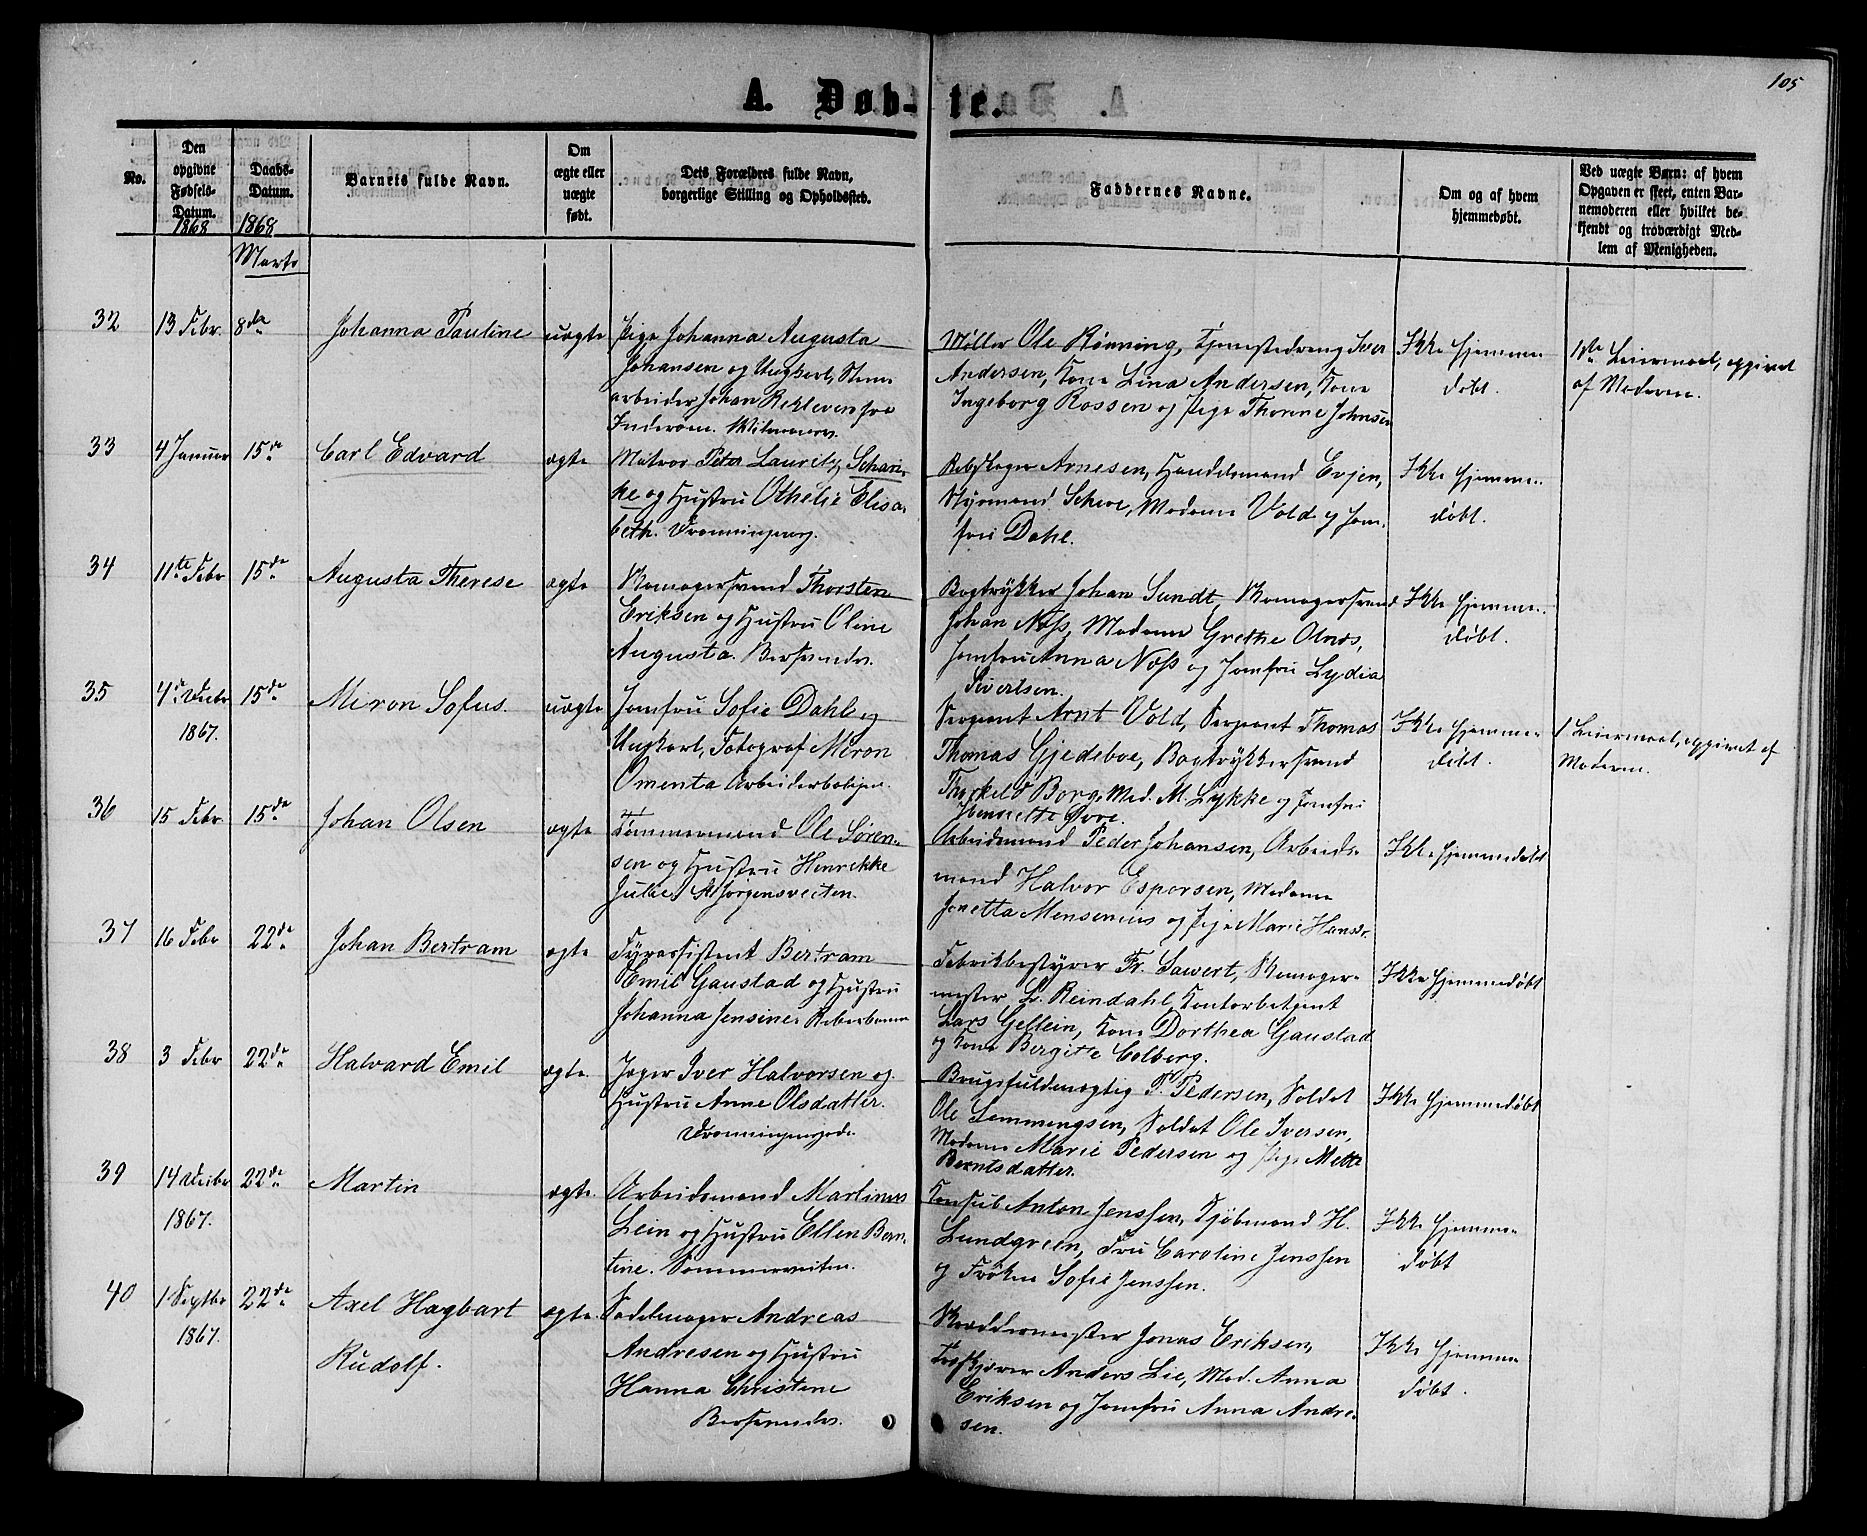 105
A. Døb-te.
No.
Den opgivne Fødsels-Datum.
1868
Daabs-Datum.
1868
Marts
Barnets fulde Navn.
Om ægte eller uægte født.
Dets Forældres fulde Navn, borgerlige Stilling og Opholdssted.
Faddernes Navne.
Om og af hvem hjemmedøbt.
Ved uægte Børn: af hvem Opgaven er skeet, enten Barnemoderen eller hvilket bekjendt og troværdigt Medlem af Menigheden.
32
13 Febr.
8de
Johanna Pauline
uægte
Pige Johanna Augusta
Johansen og Ungkarl, Sten-
arbeider Johan Rekleven fra
Inderøen.
Møller Ole Rønning, Tjenestedreng Iver
Andersen, Kone Lina Andersen, Kone
Ingeborg Rossen og Pige Thorine Johnsen
Ikke hjemme-
døbt.
1ste Leiermaal, opgivet
af Moderen.
33
4 Januar
15de
Carl Edvard
ægte
Matros Peter Lauritz Schari-
ke og Hustru Othelie Elisa-
beth.
Rebslager Arnesen, Handelsmand Evjen,
Styrmand Schive, Madame Vold og Jom-
fru Dahl.
Ikke hjemme-
døbt.
34
11te Febr
15de
Augusta Therese
ægte
Skomagersvend Thorsten
Eriksen og Hustru Oline
Augusta. Bersvendes.
Bogtrykker Johan Sundt, Skomagersvend
Johan Næss, Madame Grethe Olnæs,
Jomfru Anna Næss og Jomfru Lydia
Sivertsen.
Ikke hjemme-
døbt.
35
4de Decbr
1867.
15de
Miron Sofus.
uægte
Jomfru Sofie Dahl og
Ungkarl, Fotograf Miron
Omenta Arbeiderboliger.
Sergeant Arnt Vold, Sergeant Thomas
Thomas Gjedeboe, Bogtrykkersvend
Thorkeld Borg, Mad. M. Lykke og Jomfru
Henriette Øvre.
Ikke hjemme-
døbt.
1 Leiermaal, opgivet af
Moderen.
36
15 Febr.
15de
Johan Olsen
ægte
Tømmermand Ole Søren-
sen og Hustru Henrikke
Julie, St Jørgensveiten.
Arbeidsmand Peder Johansen, Arbeids-
mand Halvor Espersen, Madame
Jonetta Mensenius og Pige Marie Hanss.
Ikke hjemmedøbt
37
16 Febr
22de
Johan Bertram
ægte
Fyrassistent Bertram
Emil Gaustad og Hustru
Johanna Jensine.
Fabrikbestyrer Fr. Sawert, Skomager-
mester L. Reindahl, Kontorbetjent
Lars Gellein, Kone Dorthea Gaustad
og Kone Bergitte Colberg.
Ikke hjemmedøbt
38
3 Febr
22de
Halvard Emil
ægte.
Jæger Iver Halvorsen og
Hustru Anne Olsdatter.
Dronningensgade.
Brugsfuldmægtig P. Pedersen, Soldat
Ole Lemmengsen, Soldat Ole Iversen,
Madame Marie Pedersen og Pige Mette
Berntsdatter.
Ikke hjemmedøbt
39
14 Decbr
1867.
22de
Martin
ægte.
Arbeidsmand Martinus
Lein og Hustru Ellen Bern-
tine. Sommerveiten.
Konsul Anton Jenssen, Kjøbmand H.
Lundgreen, Fru Caroline Jenssen
og Frøken Sofie Jenssen.
Ikke hjemme-
døbt
40
1 Septbr
1867.
22de
Axel Hagbart
Rudolf.
ægte.
Sadelmager Andreas
Andresen og Hustru
Hanna Christine
Bersvendes.
Skræddermester Jonas Eriksen,
Anders Lie, Mad. Anna
Eriksen og Jomfru Anna Andre-
sen.
Ikke hjemme-
døbt.